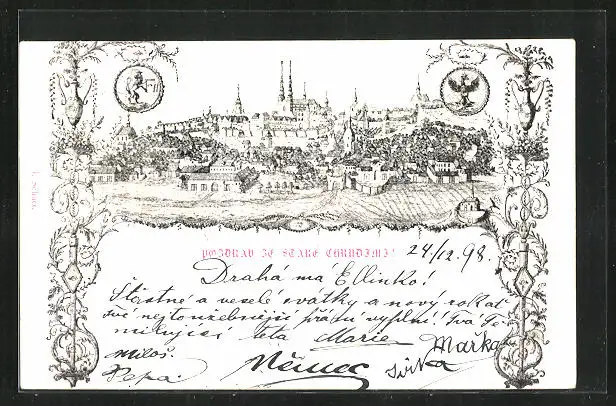 POZDRAV ZE STARÉ CHRUDIMI!
24/12.98.
Drahá má Ellinko!
Šťastné a veselé svátky a nový rok ať
své nejtoužebnější přání vyplní! Tvá Tě
milující teta Marie Mařka
Miloš
Pepa. Němec